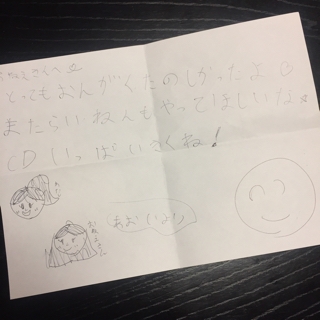 とってもおんがくたのしかったよ♡
またらいねんもやってほしいな☆
CDいっぱいきくね!
あおいより